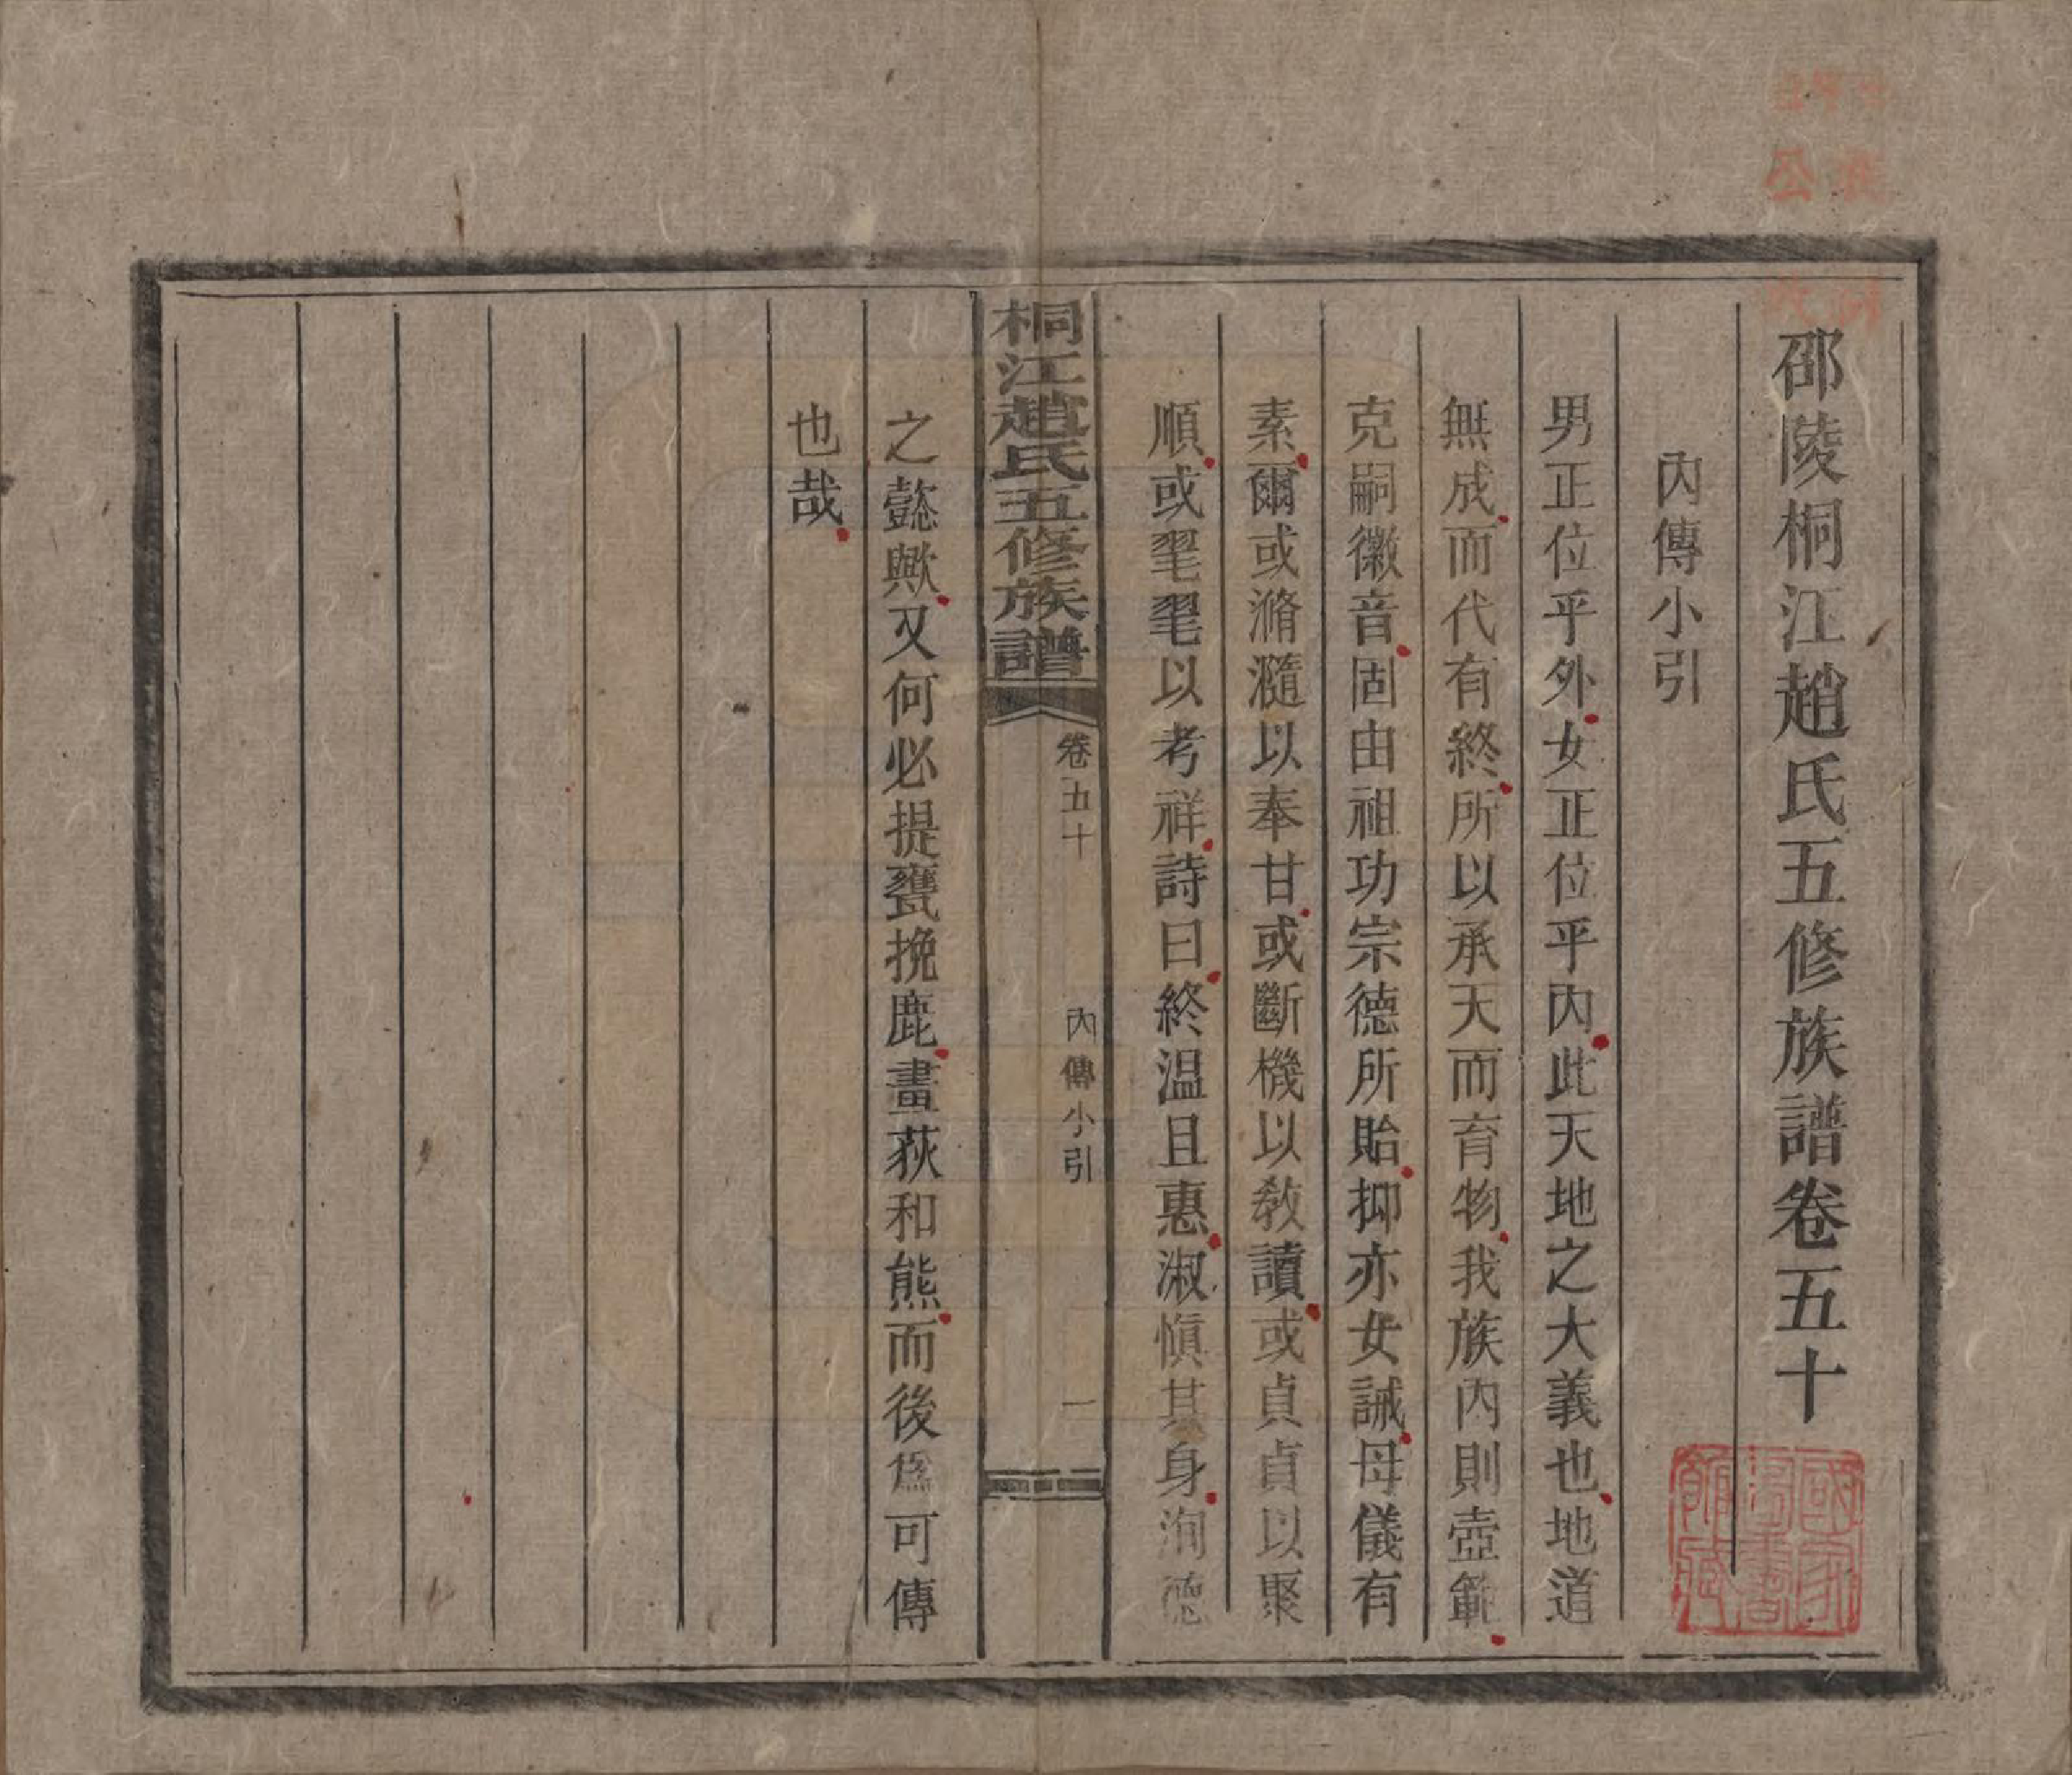 邵陵桐江趙氏五修族譜卷五十
內傳小引
男正位乎外女正位乎內此天地之大義也地道
無成而代有終所以承天而育物我族內則壼範
克嗣徽音固由祖功宗德所貽抑亦女誡母儀有
素爾或滫瀡以奉甘或斷機以敎讀或貞貞以聚
順或毣毣以考祥詩曰終温且惠淑愼其身洵德
桐江趙氏五修族譜
卷五十
內傳小引
一
之懿歟又何必提甕挽鹿畫荻和熊而後爲可傳
也哉
國家圖書館藏